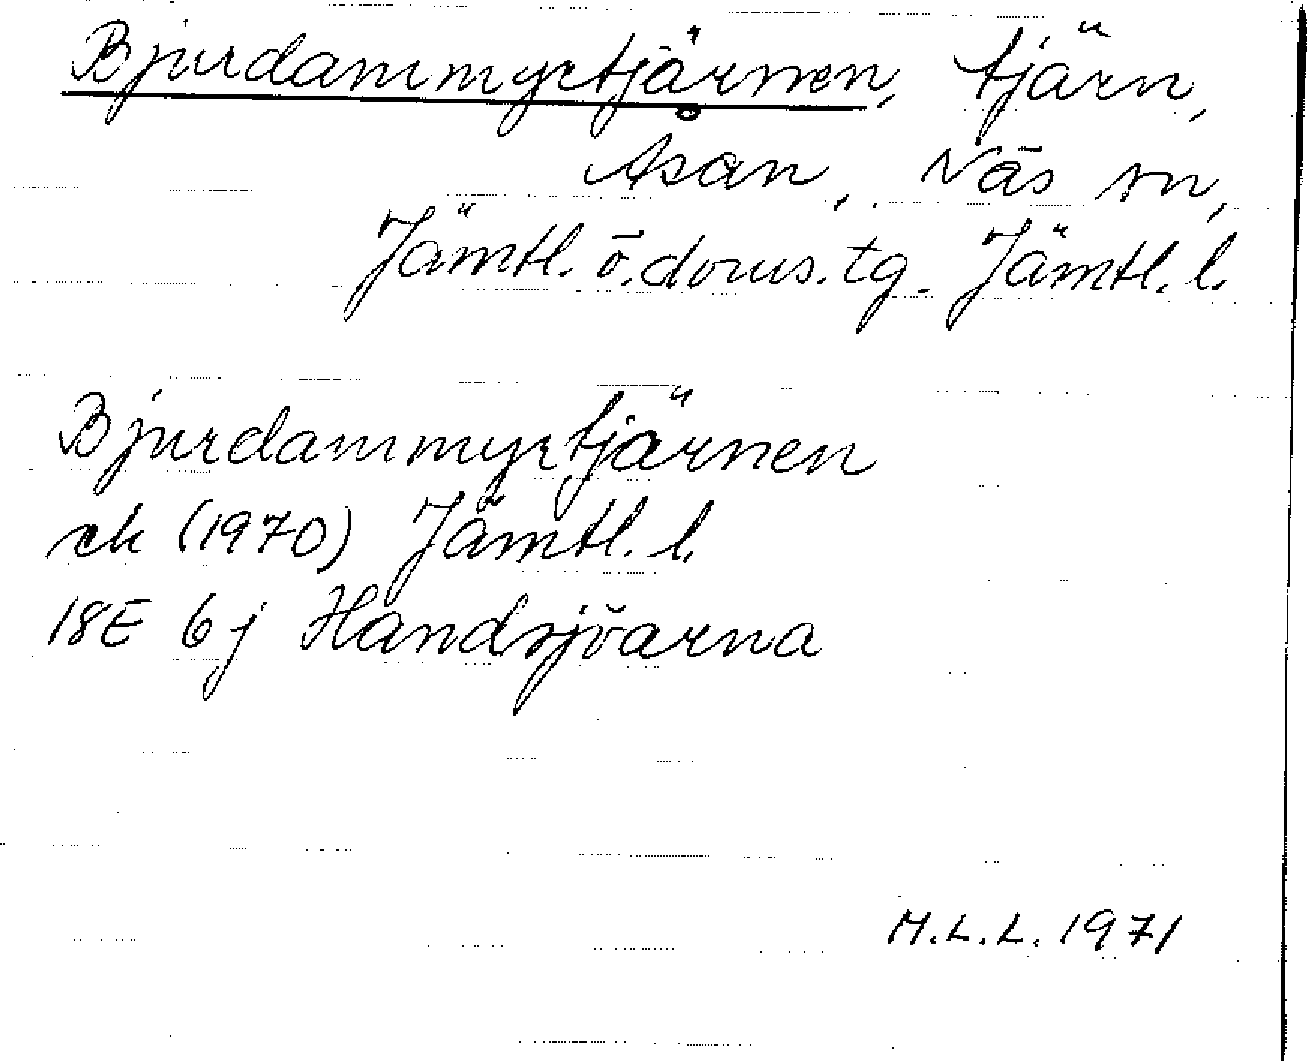 Bjurdammyrtjärnen, tjärn,
Åsan, Näs sn,
Jämtl. ö. doms. tg. Jämtl. l.
Bjurdammyrtjärnen
ek (1970) Jämtl. l.
18E 6j Handsjöarna
M.L.L. 1971